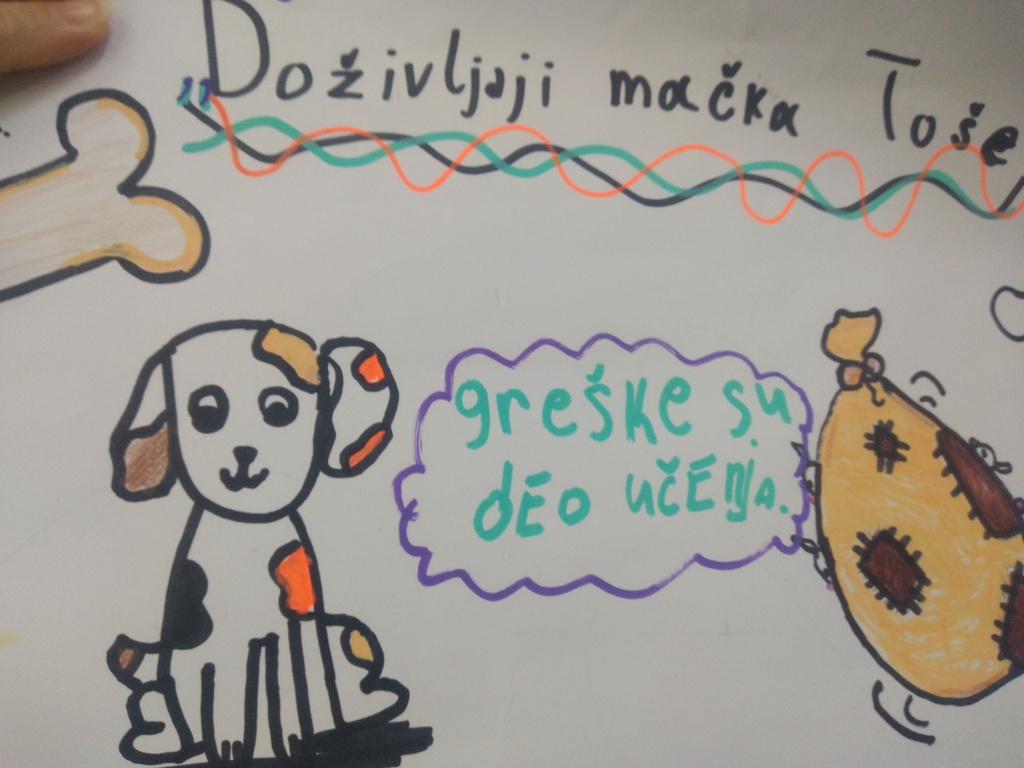 „Doživljaji mačka Toše
greške su
deo učenja.